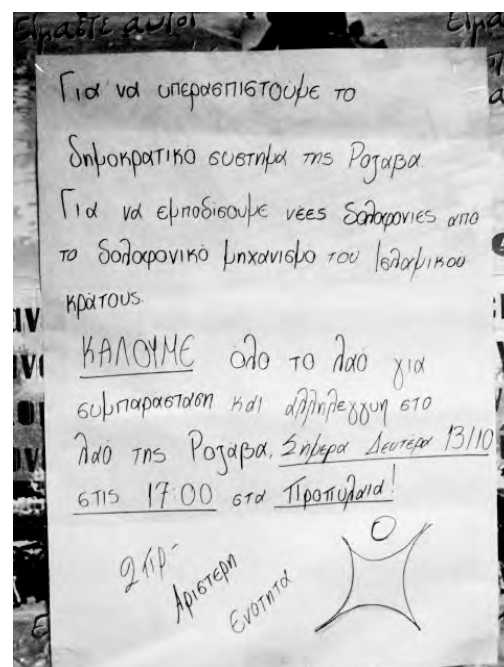 Είμαστε αυτοί
Για να υπερασπιστούμε το
δημοκρατικό συστημα της Ροζαβα
Για να εμποδισουμε νέες δολοφονιες απο
το δολοφονικό μηχανισμο του Ισλαμικου
κράτους.
ΚΑΛΟΥΜΕ όλο το λαό για
συμπαρασταση και αλληλεγγυη στο
λαό της Ροζαβα. Σήμερα Δευτέρα 13/10
στις 17:00 στα Προπυλαια!
Αριστερη
Ενοτητα